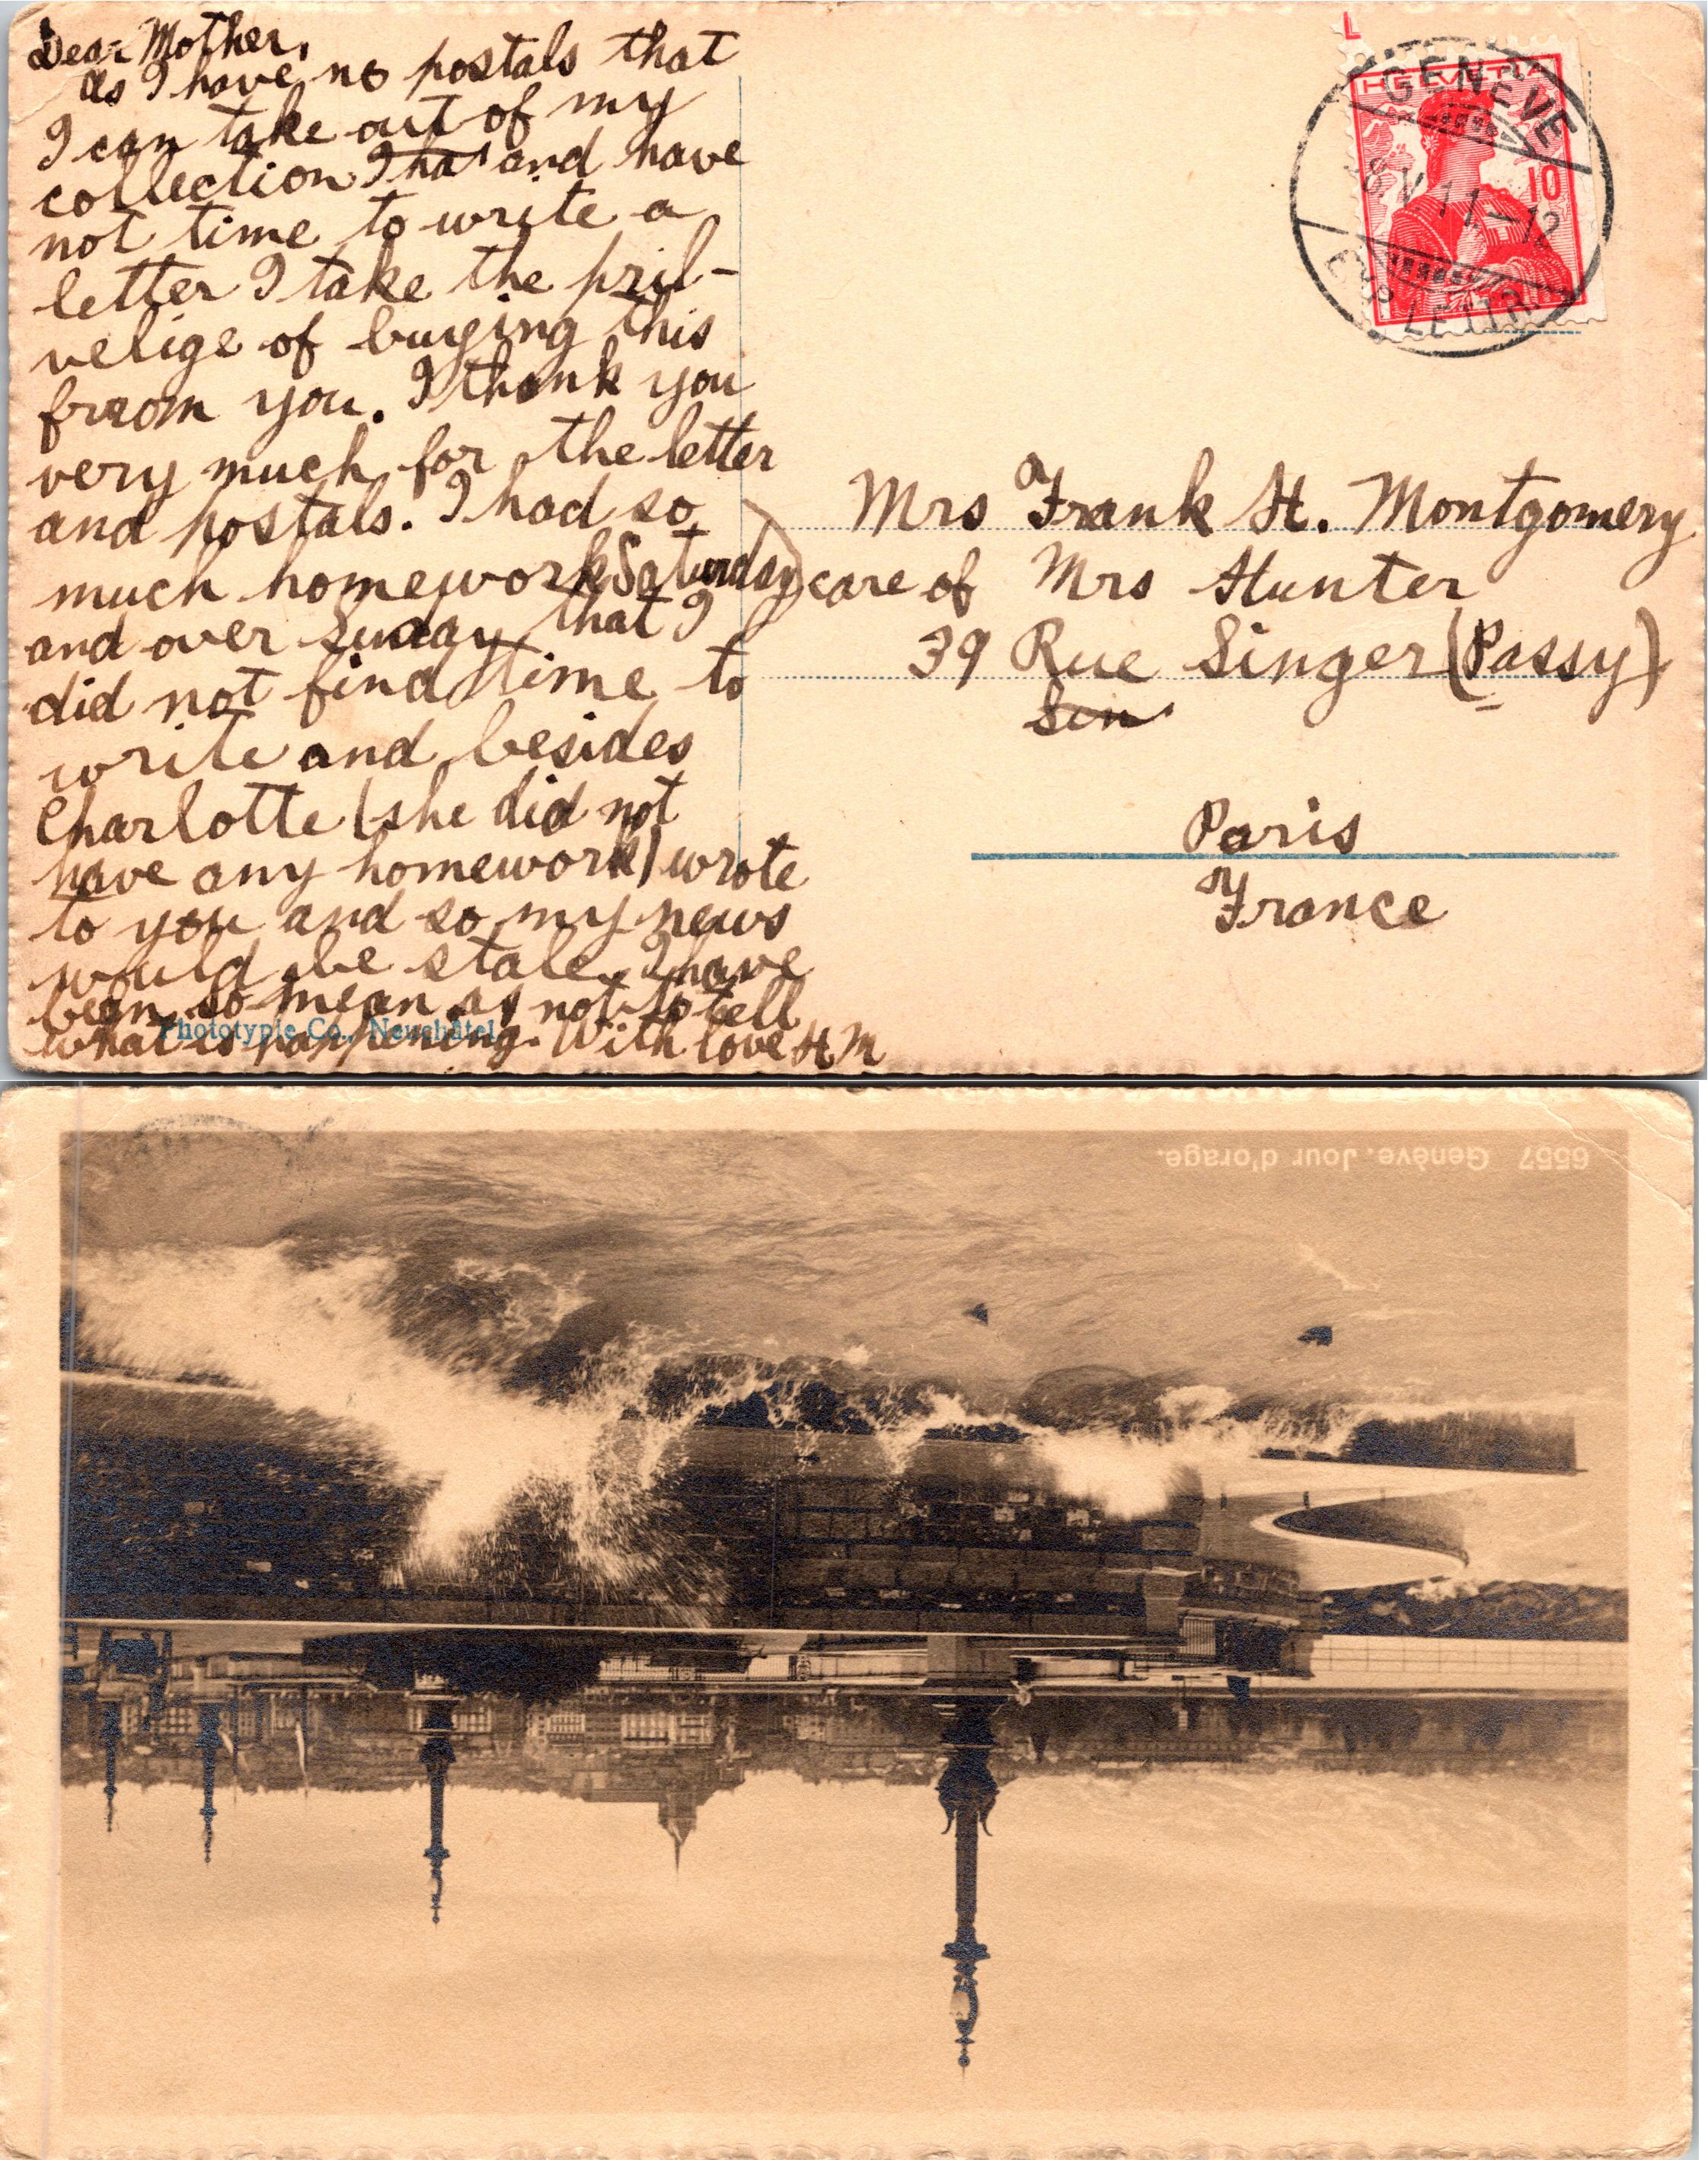 Dear Mother,
As I have no postals that
I can take out of my
collection I ha and have
not time to write a
letter I take the pril-
velige of buying this
from you. I thank you
very much for the letter
and postals. I had so
much homework Saturday
and over Sunday that I
did not find time to
write and besides
Charlotte (she did not
have any homework) wrote
to you and so my news
would be stale. I have
been so mean as not to tell
what is happening. With love H M
Phototypie Co., Neuchâtel
L
HELVETIA
10
GENÈVE
V 11-12
EXP. LETTR.
Mrs Frank H. Montgomery
care of Mrs Hunter
39 Rue Singer (Passy)
Sin
Paris
France
6557 Genève. Jour d'orage.